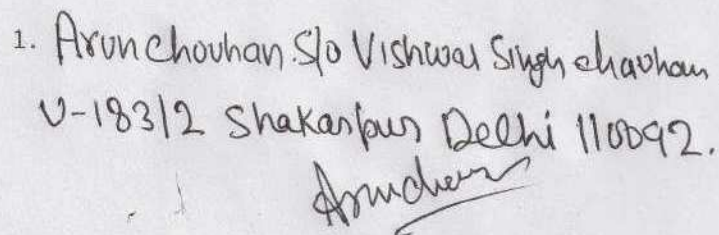 1. Arun Chouhan S/o Vishwas Singh Chauhan
U-183/2 Shakarpur Delhi 110092.